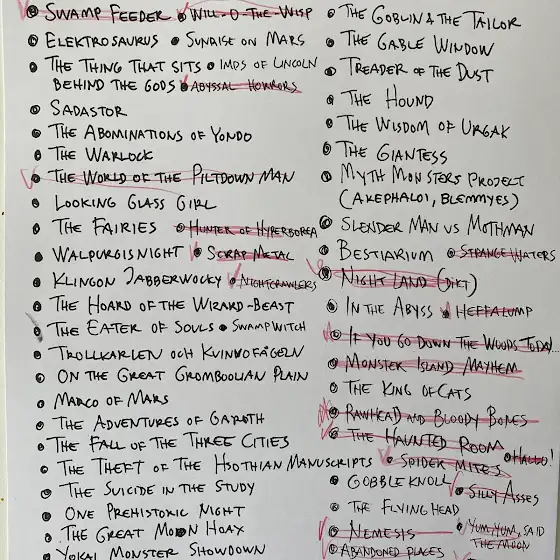 SWAMP FEEDER • WILL-O-THE-WISP
ELEKTROSAURUS • SUNRISE ON MARS
THE THING THAT SITS • IMPS OF LINCOLN
BEHIND THE GODS • ABYSSAL HORRORS
SADASTOR
THE ABOMINATIONS OF YONDO
THE WARLOCK
THE WORLD OF THE PILTDOWN MAN
LOOKING GLASS GIRL
THE FAIRIES • HUNTER OF HYPERBOREA
WALPURGISNIGHT • SCRAP METAL
KLINGON JABBERWOCKY • NIGHTCRAWLERS
THE HOARD OF THE WIZARD-BEAST
THE EATER OF SOULS • SWAMPWITCH
TROLLKARLEN OCH KVINNOFÅGELN
ON THE GREAT GROMBOOLIAN PLAIN
MARCO OF MARS
THE ADVENTURES OF GAROTH
THE FALL OF THE THREE CITIES
THE THEFT OF THE HSOTHIAN MANUSCRIPTS
THE SUICIDE IN THE STUDY
ONE PREHISTORIC NIGHT
THE GREAT MOON HOAX
YOKAI MONSTER SHOWDOWN
THE GOBLIN & THE TAILOR
THE GABLE WINDOW
TREADER OF THE DUST
THE HOUND
THE WISDOM OF URGAK
THE GIANTESS
MYTH MONSTERS PROJECT
(AKEPHALOI, BLEMMYES)
SLENDER MAN VS MOTHMAN
BESTIARIUM • STRANGE WATERS
NIGHT LAND (DIKT)
IN THE ABYSS • HEFFALUMP
IF YOU GO DOWN THE WOODS TODAY...
MONSTER ISLAND MAYHEM
THE KING OF CATS
RAWHEAD AND BLOODY BONES
THE HAUNTED ROOM • HALLO!
• SPIDER MITES
GOBBLE KNOLL • SILLY ASSES
THE FLYING HEAD
NEMESIS • YUM, YUM, SAID
THE MOON
ABANDONED PLACES